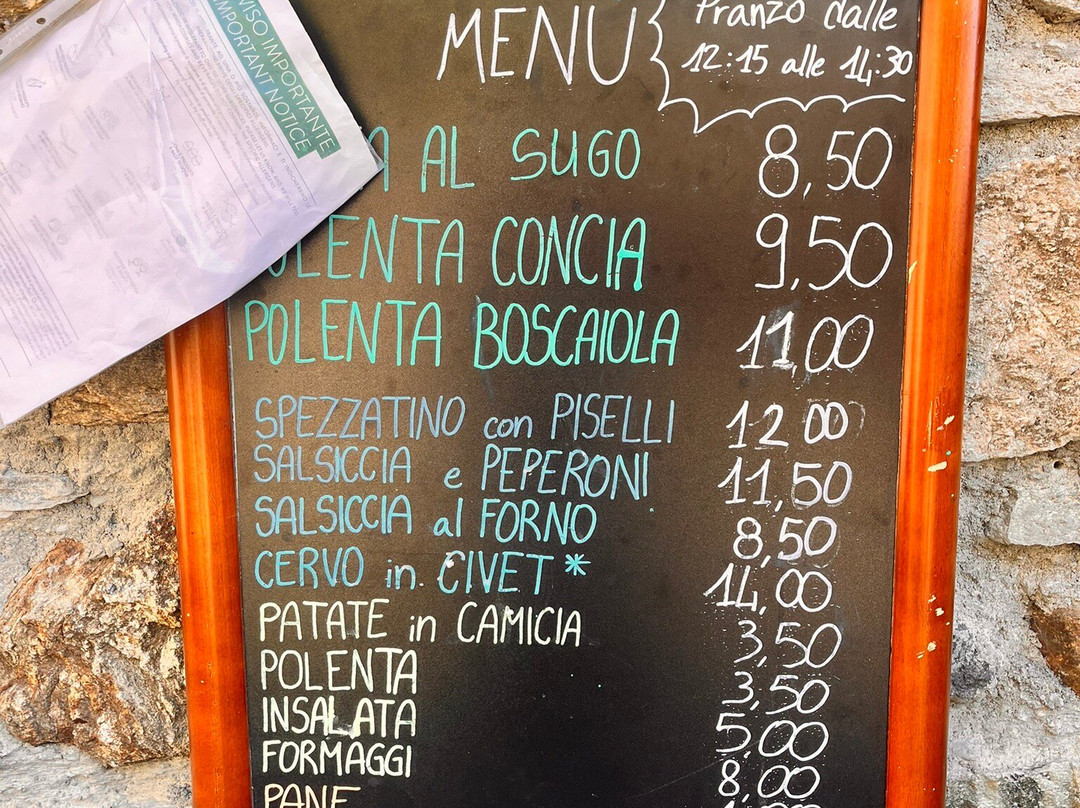 AVVISO IMPORTANTE
IMPORTANT NOTICE
MENU
Pranzo dalle
12:15 alle 14:30
AL SUGO 8,50
POLENTA CONCIA 9,50
POLENTA BOSCAIOLA 11,00
SPEZZATINO con PISELLI 12 00
SALSICCIA e PEPERONI 11,50
SALSICCIA al FORNO 8,50
CERVO in CIVET* 14,00
PATATE in CAMICIA 3,50
POLENTA 3,50
INSALATA 5,00
FORMAGGI 8,00
PANE